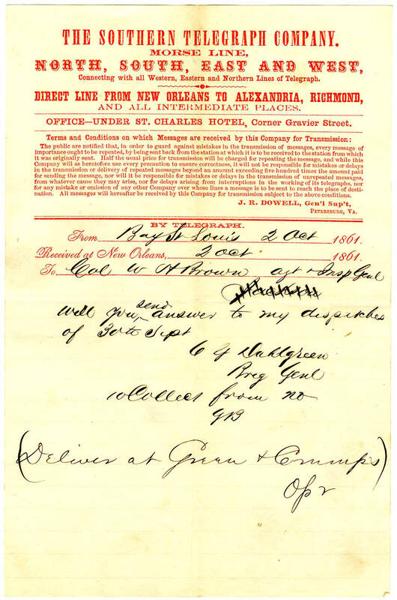 THE SOUTHERN TELEGRAPH COMPANY.
MORSE LINE,
NORTH, SOUTH, EAST AND WEST,
Connecting with all Western, Eastern and Northern Lines of Telegraph.
DIRECT LINE FROM NEW ORLEANS TO ALEXANDRIA, RICHMOND,
AND ALL INTERMEDIATE PLACES.
OFFICE—UNDER ST. CHARLES HOTEL, Corner Gravier Street.
Terms and Conditions on which Messages are received by this Company for Transmission:
The public are notified that, in order to guard against mistakes in the transmission of messages, every message of
importance ought to be repeated, by being sent back from the station at which it is to be received to the station from which
it was originally sent. Half the usual price for transmission will be charged for repeating the message, and while this
Company will as heretofore use every precaution to ensure correctness, it will not be responsible for mistakes or delays
in the transmission or delivery of repeated messages beyond an amount exceeding five hundred times the amount paid
for sending the message, nor will it be responsible for mistakes or delays in the transmission of unrepeated messages,
from whatever cause they may arise, nor for delays arising from interruptions in the working of its telegraphs, nor
for any mistake or omission of any other Company over whose lines a message is to be sent to reach the place of desti-
nation. All messages will hereafter be received by this Company for transmission subject to the above conditions.
J. R. DOWELL, Gen'l Sup't,
PETERSBURG, VA.
BY TELEGRAPH.
From Bay St Louis 2 Oct 1861.
Received at New Orleans, 2 Oct 1861.
To Col W H Brown agt & Insp Genl
Will you send answer to my dispatches
of 30th Sept
C G Dahlgreen
Brig Genl
10 Collect from no
(Deliver at Green & Crumps)
Opr